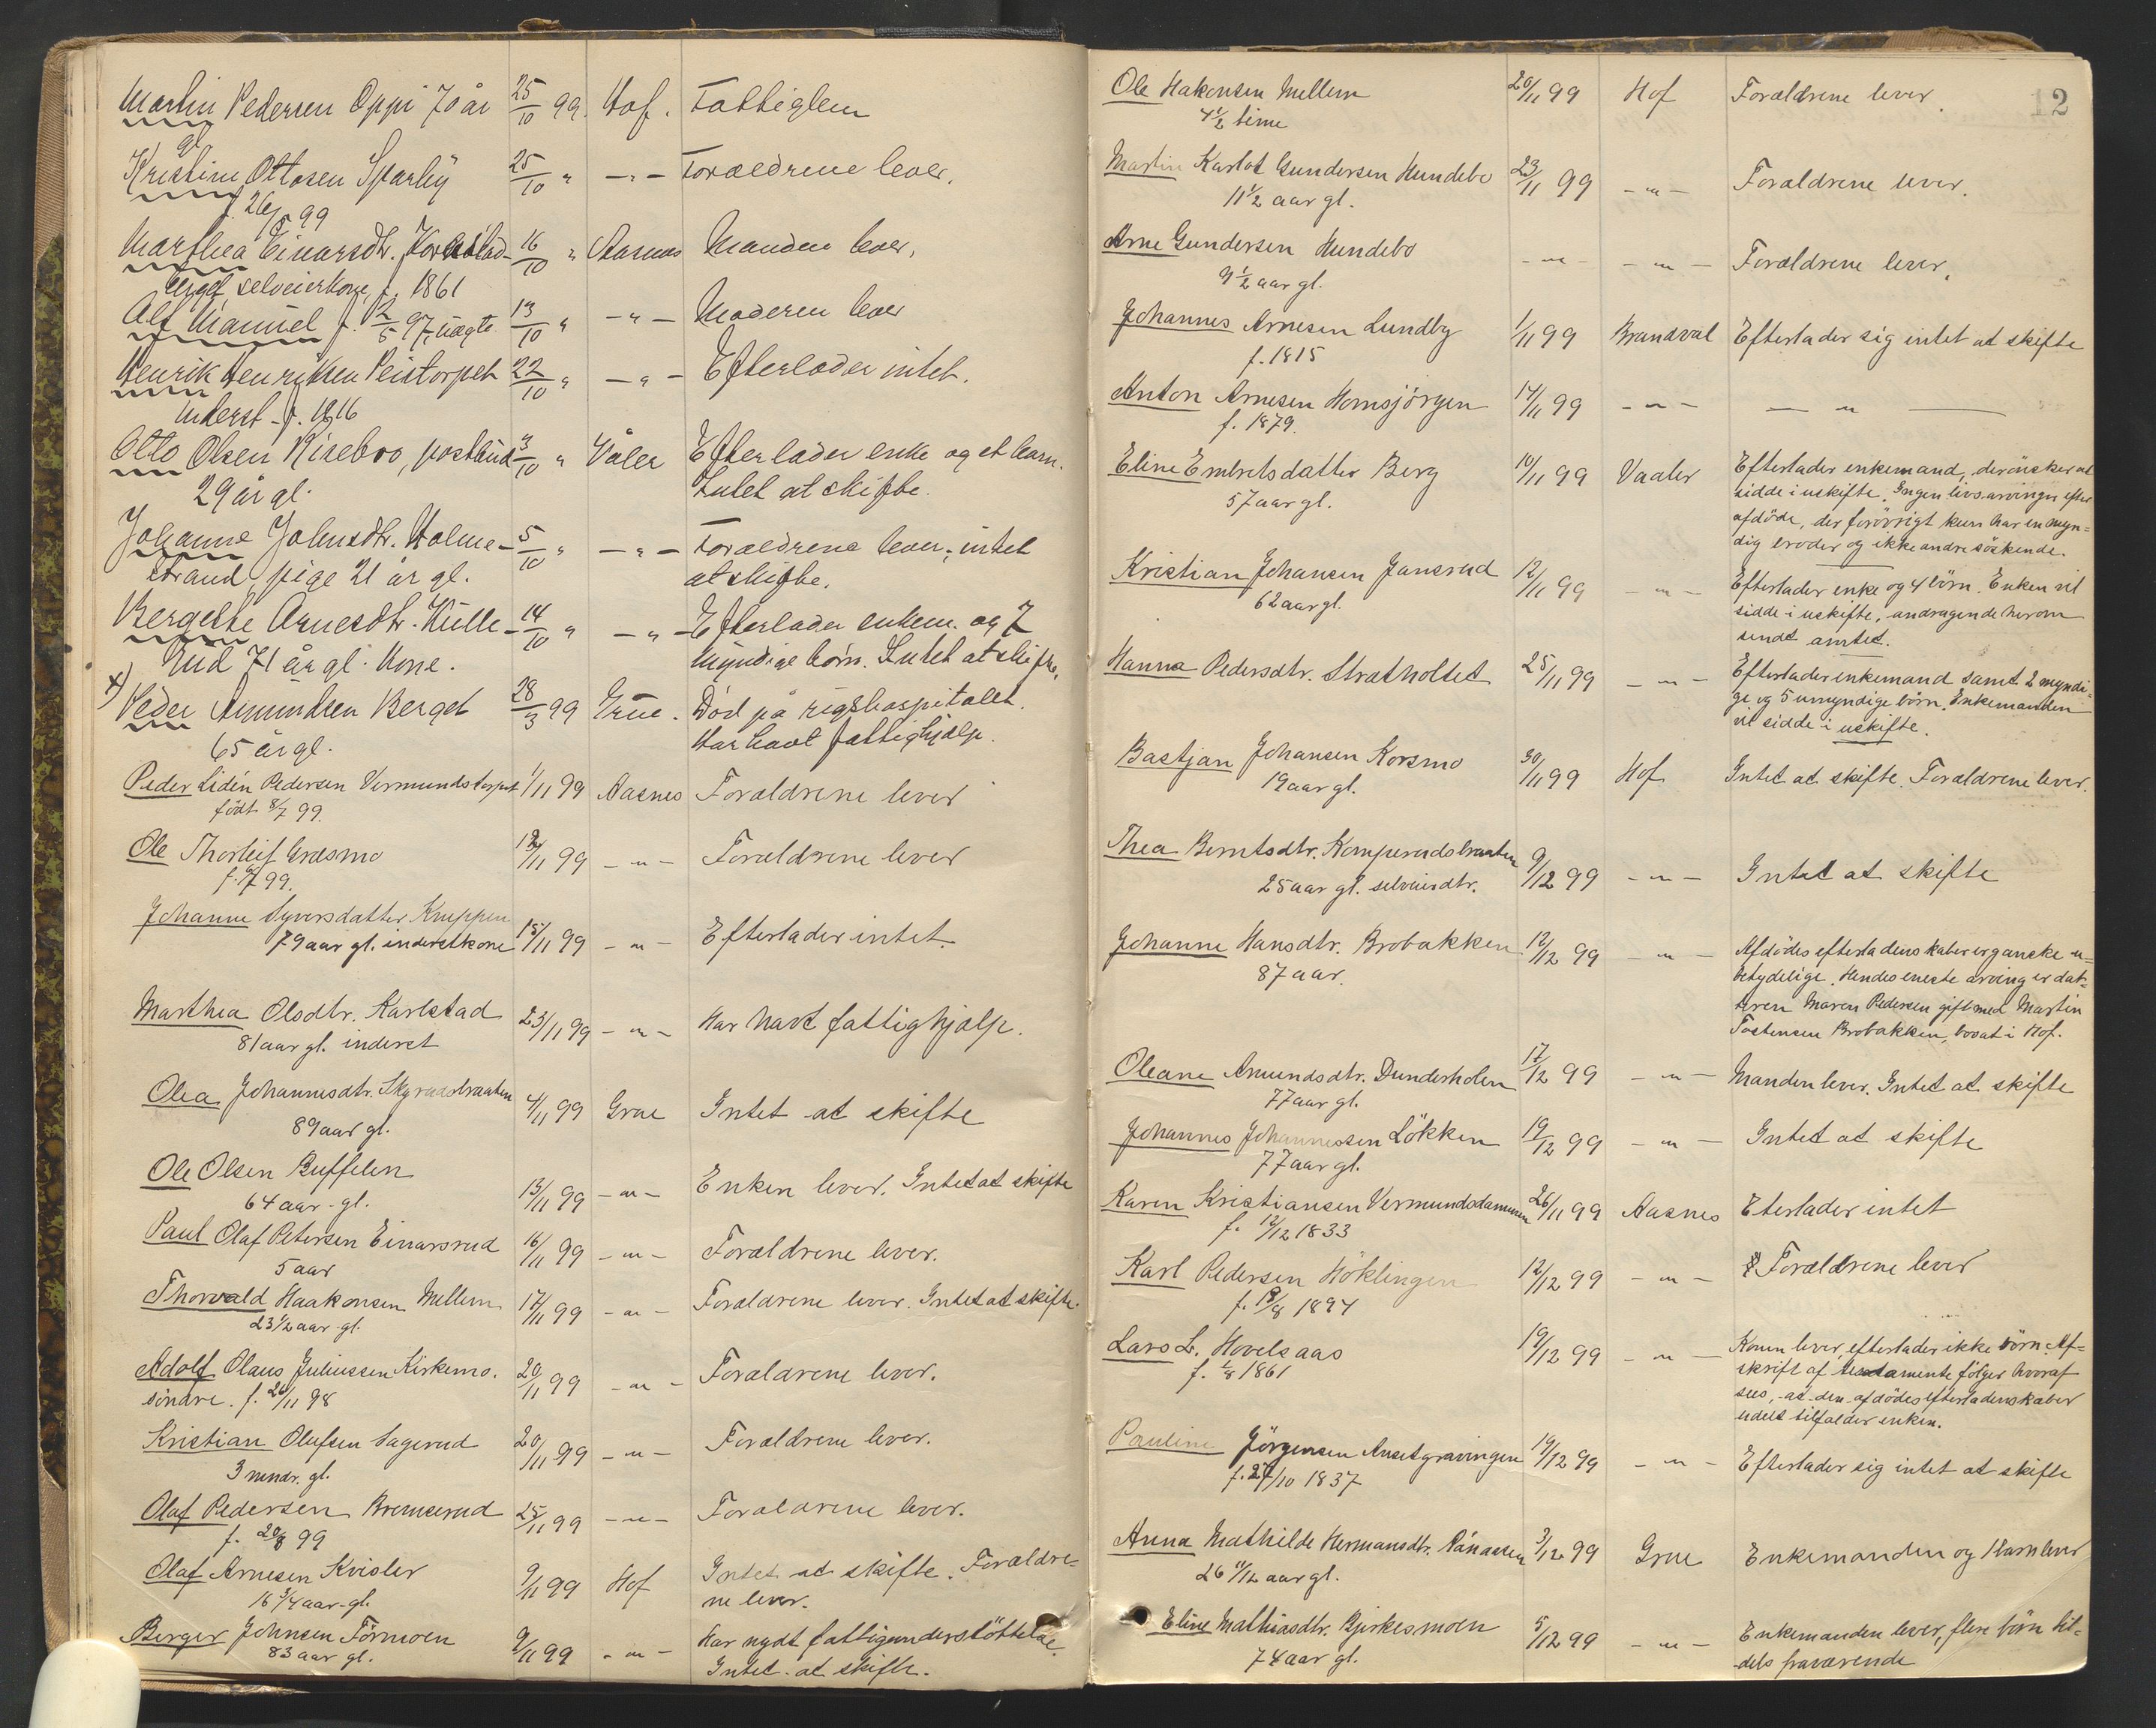 Martin Pedersen Oppi 70 år 25/10 99. Hof. Fattiglem
gl
Kristine Ottosen Sparby 25/10 " — " — Forældrene lever.
f. 26/5 99
Marthea Einarsdtr. 16/10 " Aasnes Manden lever.
selveierkone, f. 1861
Alf Manuel f. 2/5 97, uægte 13/10 " — " — Moderen lever
Henrik Henriksen Peistorpet 22/10 " — " — Efterlader intet.
Inderst - f. 1816
Otto Olsen Risebro, postbud 3/10 " Våler Efterlader enke og et barn.
29 år gl. Intet at skifte.
Johanne Johnsdtr. Holme- 5/10 " — " — Forældrene lever, intet
strand, pige 21 år gl. at skifte.
Bergethe Arnesdtr. Kulle- 14/10 " — " — Efterlader enkem. og 7
rud 71 år gl. Kone. myndige børn. Intet at skifte.
x) Peder Amundsen Berget 28/3 99 Grue. Död på rigshospitalet.
65 år gl. Har havt fattighjælp.
Peder Lidén Pedersen Vermundstorpet 1/11 99 Aasnes Forældrene lever
födt 8/7 99.
Ole Thorleif Grasmo 12/11 99 — " — Forældrene lever
f. 99.
Johanne Syversdatter Kruppen
79 aar gl. inderstkone 15/11 99 — " — Efterlader intet.
Marthea Olsdtr. Karlstad 23/11 99 — " — Har havt fattighjælp.
81 aar gl. inderst
Olea Johannesdtr. 4/11 99 Grue Intet at skifte
89 aar gl.
Ole Olsen Buffelen 13/11 99 — " — Enken lever. Intet at skifte
64 aar. gl.
Paul Olaf Petersen Einarsrud 16/11 99 — " — Forældrene lever.
5 aar
Thorvald Haakonsen Mellem 17/11 99 — " — Forældrene lever. Intet at skifte.
23 1/2 aar. gl.
Adolf Olaus Juliussen Kirkemo. 20/11 99 — " — Forældrene lever.
söndre. f. 26/11 98
Kristian Olufsen Sagerud 20/11 99 — " — Forældrene lever.
3 mndr. gl.
Olaf Pedersen Bremserud 25/11 99 — " — Forældrene lever.
f. 20/8 99
Olaf Arnesen Kvisler 9/11 99 Hof Intet at skifte. Forældre-
16 3/4 aar. gl. ne lever.
Berger Johnsen Törmoen 9/11 99 — " — Har nydt fattigunderstöttelse.
83 aar gl. Intet at skifte.
12
Ole Hakonsen Mellem 20/11 99 Hof Forældrene lever.
4 1/2 time
Martin Karlot Gundersen Hundebo 23/11 99 — " — Forældrene lever.
11 1/2 aar gl.
Arne Gundersen Hundebo — " — — " — Forældrene lever.
9 1/2 aar gl.
Johannes Arnesen Lundby 1/11 99 Brandval Efterlader sig intet at skifte
f. 1815
Anton Arnesen Hornsjörgen 14/11 99 — " — — " —
f. 1879.
Eline Embretsdatter Berg 10/11 99 Vaaler Efterlader enkemand, der önsker at
57 aar gl. sidde i uskifte. Ingen livsarvinger efter
afdöde, der forövrigt kun har en myn-
dig broder og ikke andre söskende.
Kristian Johansen Jansrud 12/11 99 — " — Efterlader enke og 4 börn. Enken vil
62 aar gl. sidde i uskifte, andragende herom
sendt amtet.
Hanna Pedersdtr. Stratholtet 25/11 99 — " — Efterlader enkemand samt 2 myndi-
ge og 5 umyndige börn. Enkemanden
vil sidde i uskifte.
Bastjan Johansen Korsmo 30/11 99 Hof Intet at skifte. Forældrene lever.
19 aar gl.
Thea Berntsdtr. Kompensrudsbraaten 9/12 99 — " — Intet at skifte
25 aar gl. selveierdtr.
Johanne Hansdtr. Brobakken 12/12 99 — " — Afdödes efterladenskaber er ganske u-
87 aar. betydelige. Hendes eneste arving er dat-
teren Maren Pedersen gift med Martin
Tostensen Brobakken, bosat i Hof.
Oleane Amundsdtr. Dunderholen 17/12 99 — " — Manden lever. Intet at skifte
77 aar gl.
Johannes Johannessen Lökken 19/12 99 — " — Intet at skifte
77 aar gl.
Karen Kristiansen Vermundsdammen 26/11 99 Aasnes Eterlader intet
f. 12/12 1833
Karl Pedersen Höklingen 12/12 99 — " — Forældrene lever
f. 18/8 1894
Lars L. Hovelsaas 19/12 99 — " — Konen lever, efterlader ikke börn. Af-
f. 1/8 1861 skrift af testamente fölger hvoraf
sees, at den afdödes efterladenskaber
udels tilfalder enken.
Pauline Jörgensen Ansetgravingen 19/12 99 — " — Efterlader sig intet at skifte
f. 27/10 1837
Anna Mathilde Hermansdtr. Pånaasen 3/12 99 Grue Enkemanden og 1 barn lever
26 11/12 aar gl.
Eline Mathiasdtr. Bjirkesmoen 5/12 99 — " — Enkemanden lever, flere börn til-
78 aar gl. dels fraværende